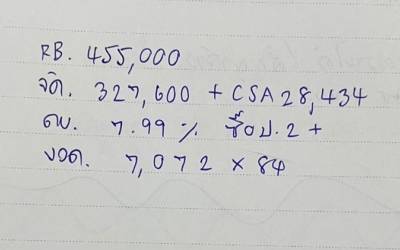 RB. 455,000
จัด. 327,600 + CSA 28,434
ดบ. 7.99 % ซื้อป.2+
งวด. 7,072 x 84